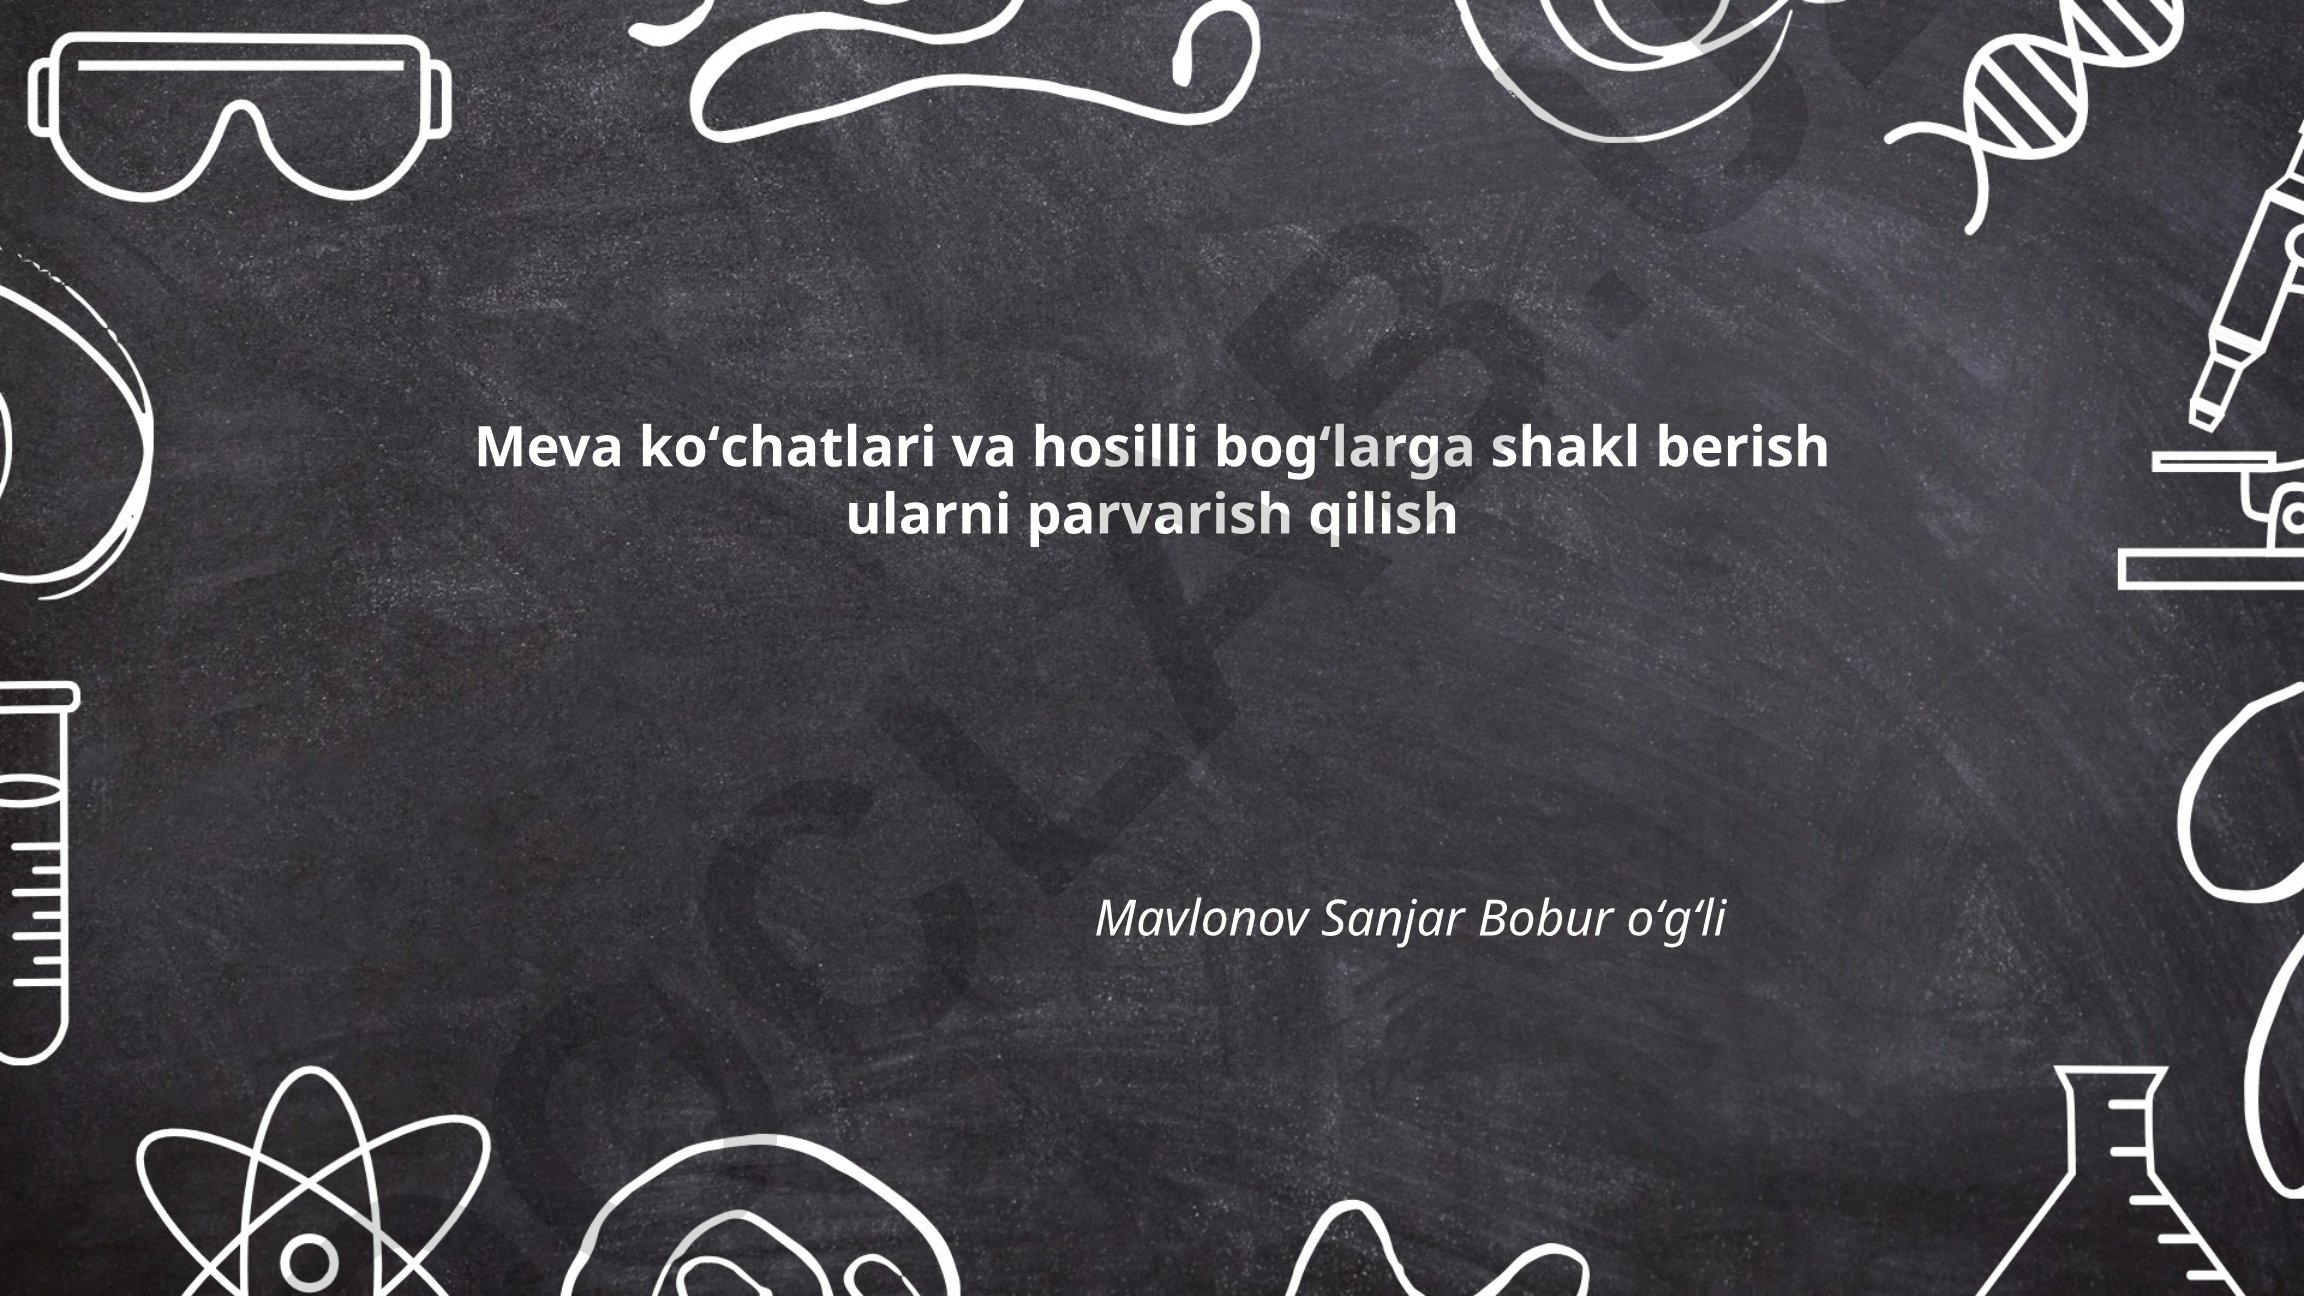 Meva ko‘chatlari va hosilli bog‘larga shakl berish
ularni parvarish qilish
Mavlonov Sanjar Bobur o‘g‘li